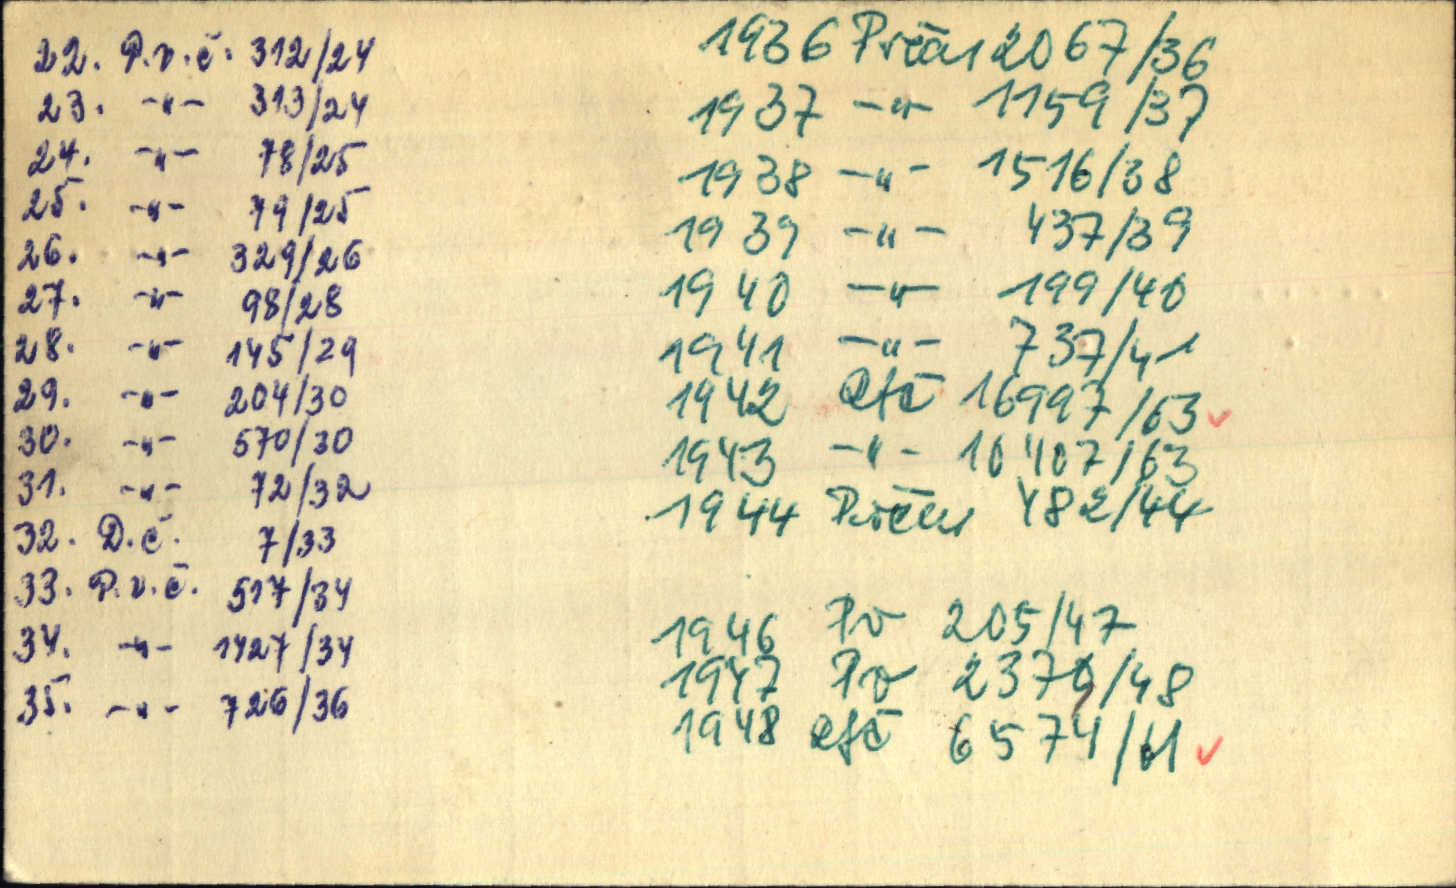 22. P.v.č. 312/24
23. -〃- 313/24
24. -〃- 78/25
25. -〃- 79/25
26. -〃- 329/26
27. -〃- 98/28
28. -〃- 145/29
29. -〃- 204/30
30. -〃- 570/30
31. -〃- 72/32
32. D.č. 7/33
33. P.v.č. 517/34
34. -〃- 1427/34
35. -〃- 726/36
1936 2067/36
1937 -〃- 1159/37
1938 -〃- 1516/38
1939 -〃- 437/39
1940 -〃- 199/40
1941 -〃- 737/41
1942 16997/63 ✓
1943 -〃- 10407/63
1944 482/44
1946 Pv 205/47
1947 Pv /48
1948 6574/61 ✓